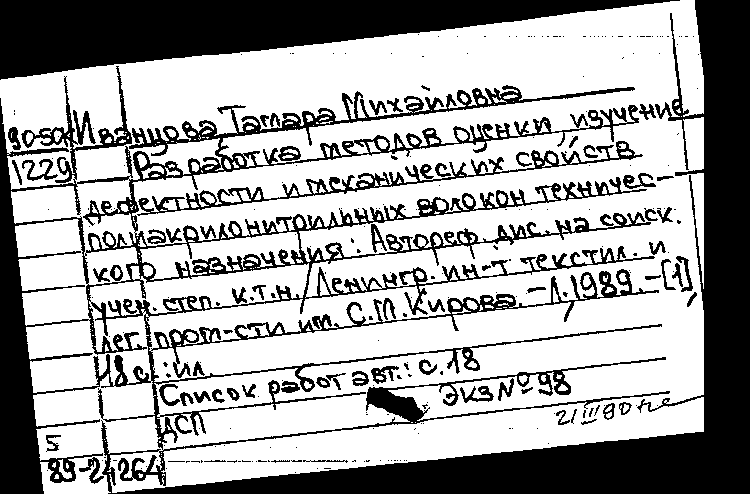 90-50к Иванцова Тамара Михайловна
1229 Разработка методов оценки, изучение
дефектности и механических свойств
полиакрилонитрильных волокон техничес-
кого назначения: Автореф. дис. на соиск.
учен. степ. к.т.н. / Ленингр. ин-т текстил. и
лег. пром-сти им. С.М. Кирова. – Л., 1989. – [1],
18 с. : ил.
Список работ авт.: с. 18
Экз № 98
ДСП
21 III 90
5
89-24264